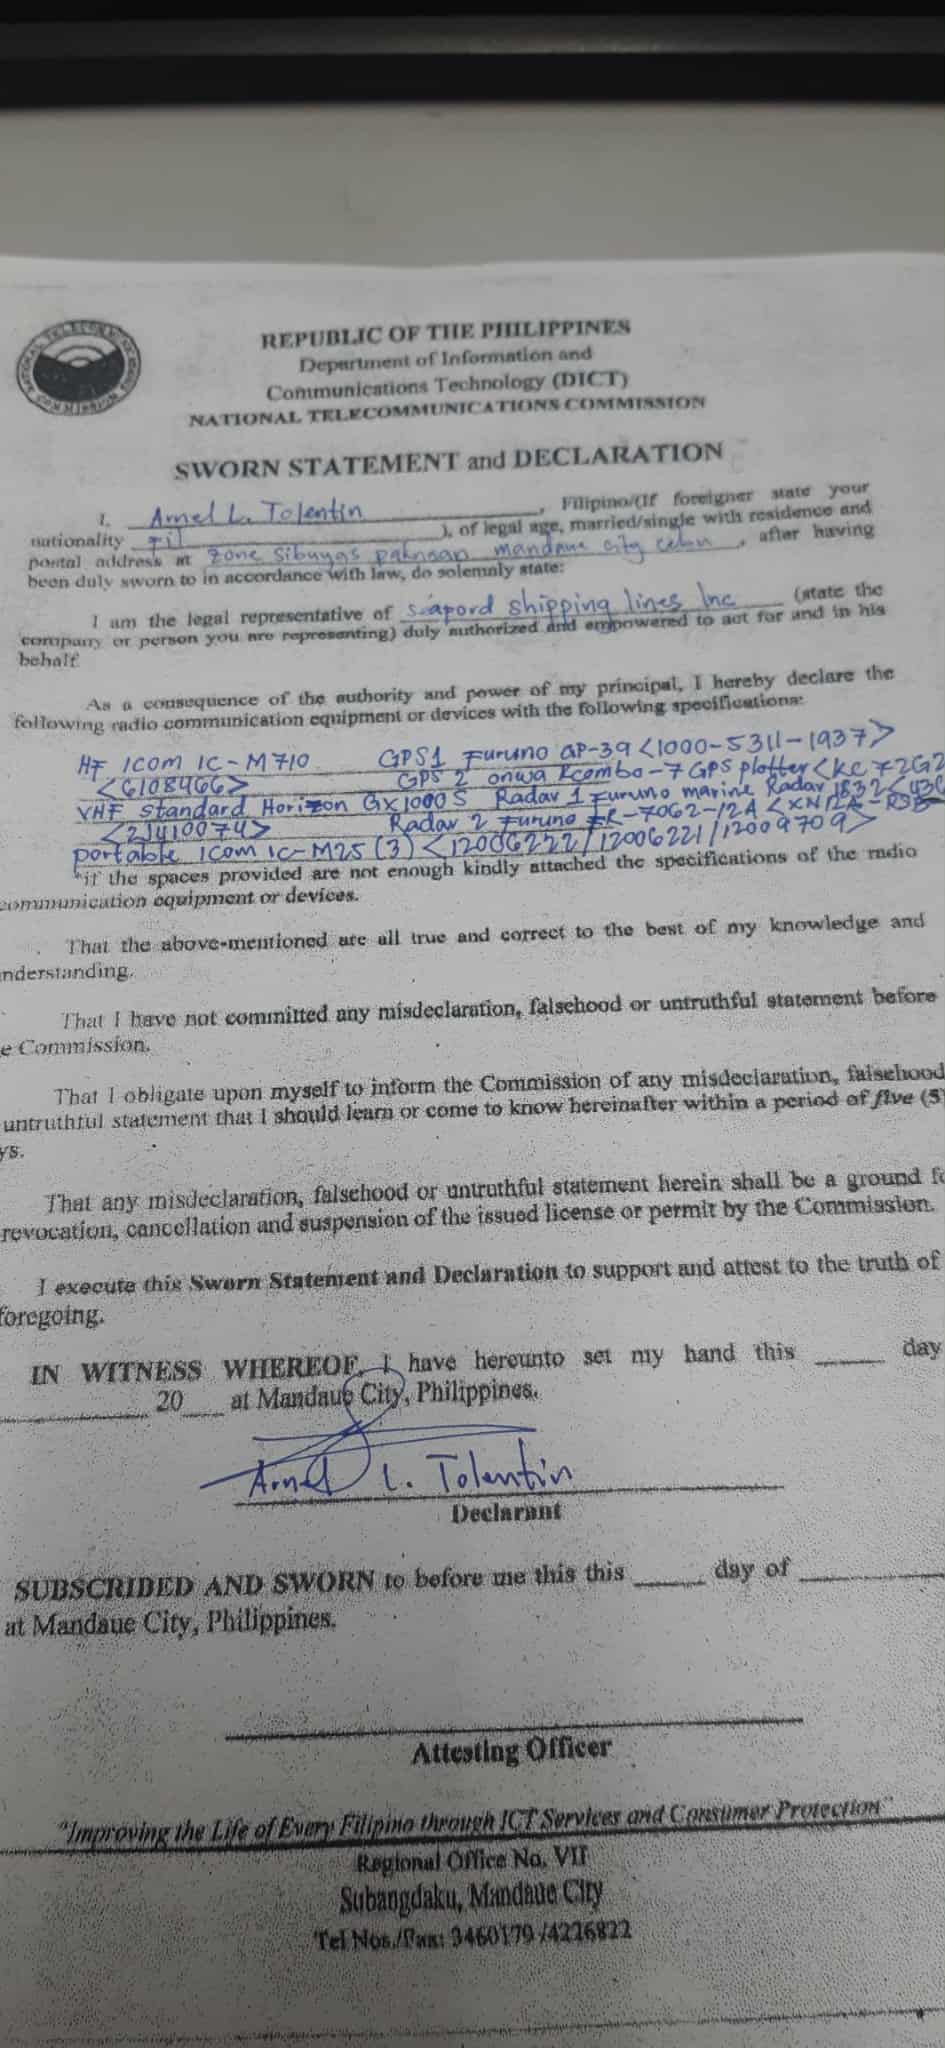 REPUBLIC OF THE PHILIPPINES
Department of Information and
Communications Technology (DICT)
NATIONAL TELECOMMUNICATIONS COMMISSION
SWORN STATEMENT and DECLARATION
I, Arnel L. Tolentin, Filipino/(If foreigner state your
nationality fil), of legal age, married/single with residence and
postal address at zone Sibuyas paknaan mandaue city cebu, after having
been duly sworn to in accordance with law, do solemnly state:
I am the legal representative of seapord shipping lines Inc (state the
company or person you are representing) duly authorized and empowered to act for and in his
behalf.
As a consequence of the authority and power of my principal, I hereby declare the
following radio communication equipment or devices with the following specifications:
HF ICOM IC-M710 GPS1 Furuno GP-39 <1000-5311-1937>
<6108466> GPS 2 onwa Kcombo-7 GPS plotter <KC72G2
VHF Standard Horizon GX1000S Radar 1 Furuno marine Radar 1832 <436
<2J410074> Radar 2 Furuno FR-7062-12A <XN12A-RSB
portable ICOM IC-M25 (3) <12006222/12006221/12009709>
*if the spaces provided are not enough kindly attached the specifications of the radio
communication equipment or devices.
That the above-mentioned are all true and correct to the best of my knowledge and
nderstanding.
That I have not committed any misdeclaration, falsehood or untruthful statement before
e Commission.
That I obligate upon myself to inform the Commission of any misdeclaration, falsehood
untruthful statement that I should learn or come to know hereinafter within a period of five (5)
ys.
That any misdeclaration, falsehood or untruthful statement herein shall be a ground fo
revocation, cancellation and suspension of the issued license or permit by the Commission.
I execute this Sworn Statement and Declaration to support and attest to the truth of
foregoing.
IN WITNESS WHEREOF, I have hereunto set my hand this ____ day
________ 20__ at Mandaue City, Philippines.
Arnel L. Tolentin
Declarant
SUBSCRIBED AND SWORN to before me this this ____ day of ________
at Mandaue City, Philippines.
Attesting Officer
"Improving the Life of Every Filipino through ICT Services and Consumer Protection"
Regional Office No. VII
Subangdaku, Mandaue City
Tel Nos./Fax: 3460179 /4226822